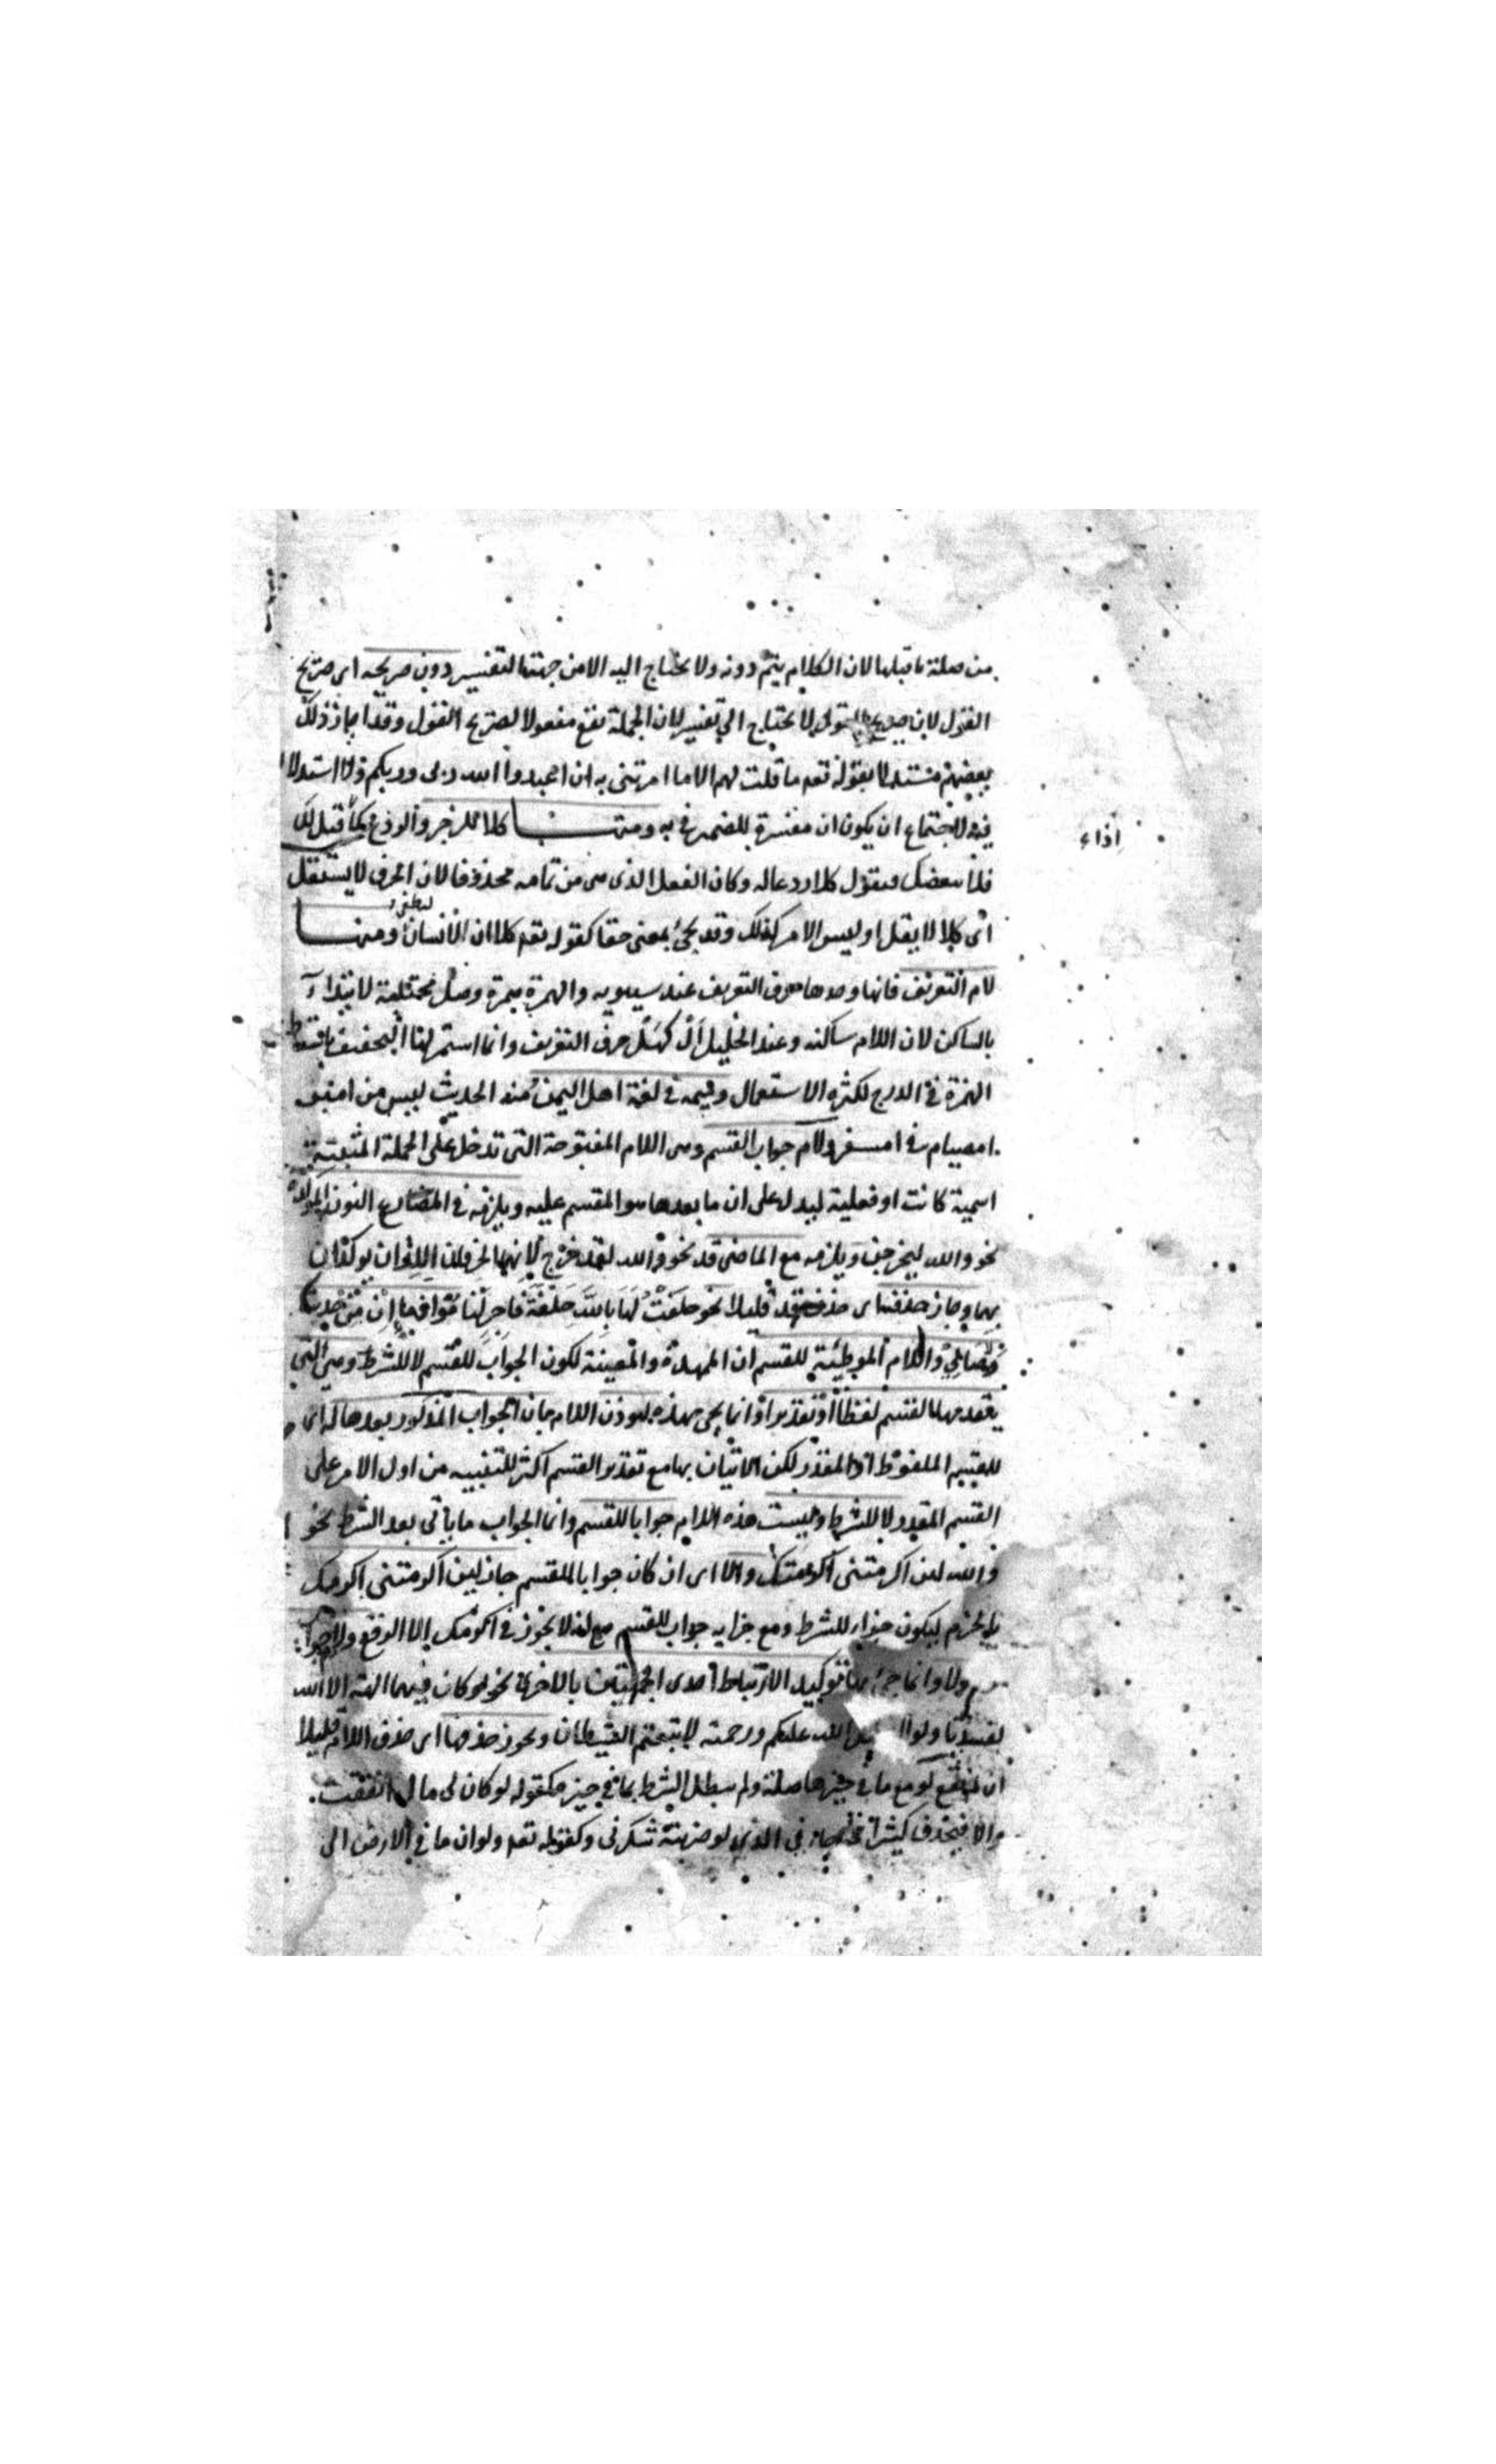 من صلة ما قبلها لان الكلام يتم دونه ولا يحتاج اليه الا من جهة التفسير دون صريحه اى صريح
القول لان صريح القول لا يحتاج الى تفسير لان الجملة تقع مفعولا لصريح القول وقد اجاز ذلك
بعضهم مستدلا بقوله تعه ما قلت لهم الا ما امرتنى به ان اعبدوا الله ربى وربكم ولا استدلال
فيه لاحتمال ان يكون ان مفسرة للضمير فى به ومنها كلا للزجر والردع كما قيل لك
فلان يبغضك فتقول كلا ردعا له وكان الفعل الذى هى من تمامه محذوفا لان الحرف لا يستقل
اى كلا لا يقل او ليس الامر كذلك وقد يجئ بمعنى حقا كقوله تعه كلا ان الانسان ليطغى ومنها
لام التعريف فانها وحدها حرف التعريف عند سيبويه والهمزة همزة وصل مجتلبة لابتداء
بالساكن لان اللام ساكنه وعند الخليل ال كهل حرف التعريف وانما استمر لها التخفيف باسقاط
الهمزة فى الدرج لكثرة الاستعمال وميمه فى لغة اهل اليمن منه الحديث ليس من امبر
امصيام فى امسفر ولام جواب القسم وهى اللام المفتوحة التى تدخل على الجملة المثبتة
اسمية كانت او فعلية ليدل على ان ما بعدها هو المقسم عليه ويلزمه فى المضارع النون المؤكدة
نحو والله ليخرجن ويلزمه مع الماضى قد نحو والله لقد خرج لانهما الحرفان اللذان يوكدان
بهما وجاز حذفها اى حذف قد قليلا نحو حلفت لها بالله حلفة فاجر لناموا فما ان من حديث
ولا صالى واللام الموطئة للقسم اى الممهدة والمعينة لكون الجواب للقسم لا للشرط وهى التى
يتقدمها القسم لفظا او تقديرا وانما يجى بهذه ليوذن اللام بان الجواب المذكور بعدها له انما
للقسم الملفوظ او المقدر لكن الاتيان بها مع تقدير القسم اكثر للتنبيه من اول الامر على
القسم المقدر لا للشرط وليست هذه اللام جوابا للقسم وانما الجواب ما يأتى بعد الشرط نحو
والله لئن اكرمتنى اكرمتك والا اى ان كان جوابا للقسم جاز لئن اكرمتنى اكرمك
بالجزم ليكون جزاء للشرط ومع جزايه جواب للقسم مع انه لا يجوز فى اكرمك الا الرفع ولام جواب
ولولا وانما جئ بها توكيد الارتباط احدى الجملتين بالاخرى نحو لو كان فيهما الهة الا الله
لفسدتا ولولا الله عليكم ورحمته لاتبعتم الشيطان ويجوز حذفها اى حذف اللام قليلا
ان لم تقع لو مع ما فى حيزها صلة ولم يطل الشرط بما فى حيزه كقوله لو كان لى مال انفقت
والا فيحذف كثيرا نحو جاءنى الذى لو ضربته شكرنى وكقوله تعه ولو ان ما فى الارض الى
اذاء